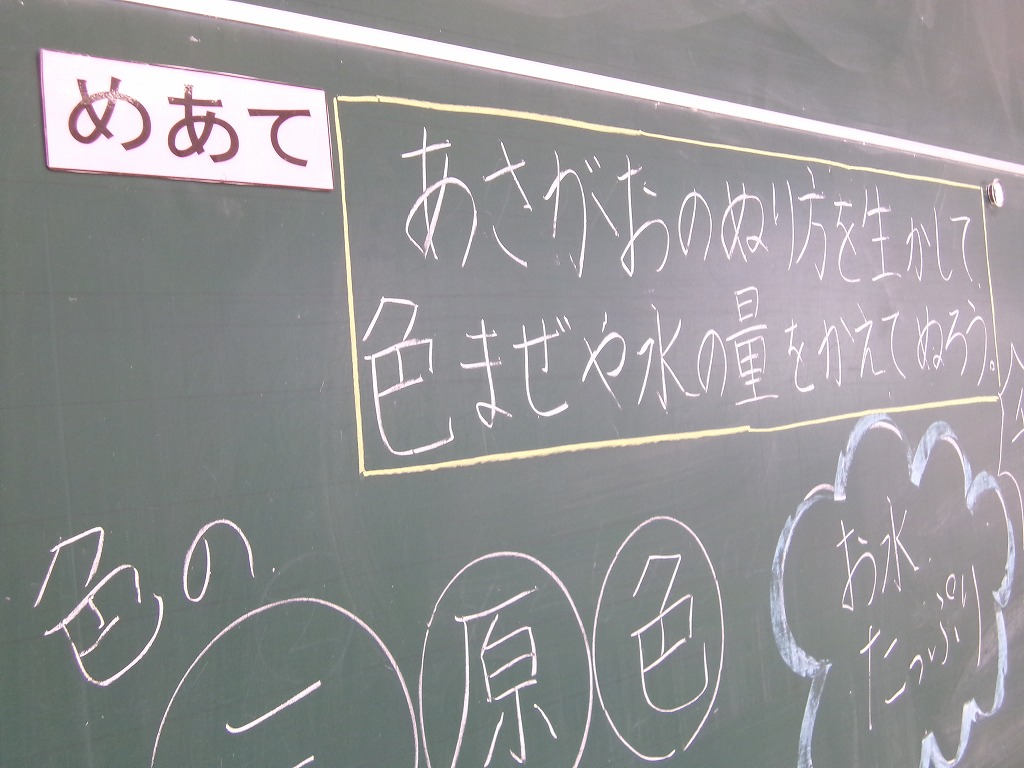 めあて
あさがおのぬり方を生かして
色まぜや水の量をかえてぬろう。
色の
三原色
お水
たっぷり